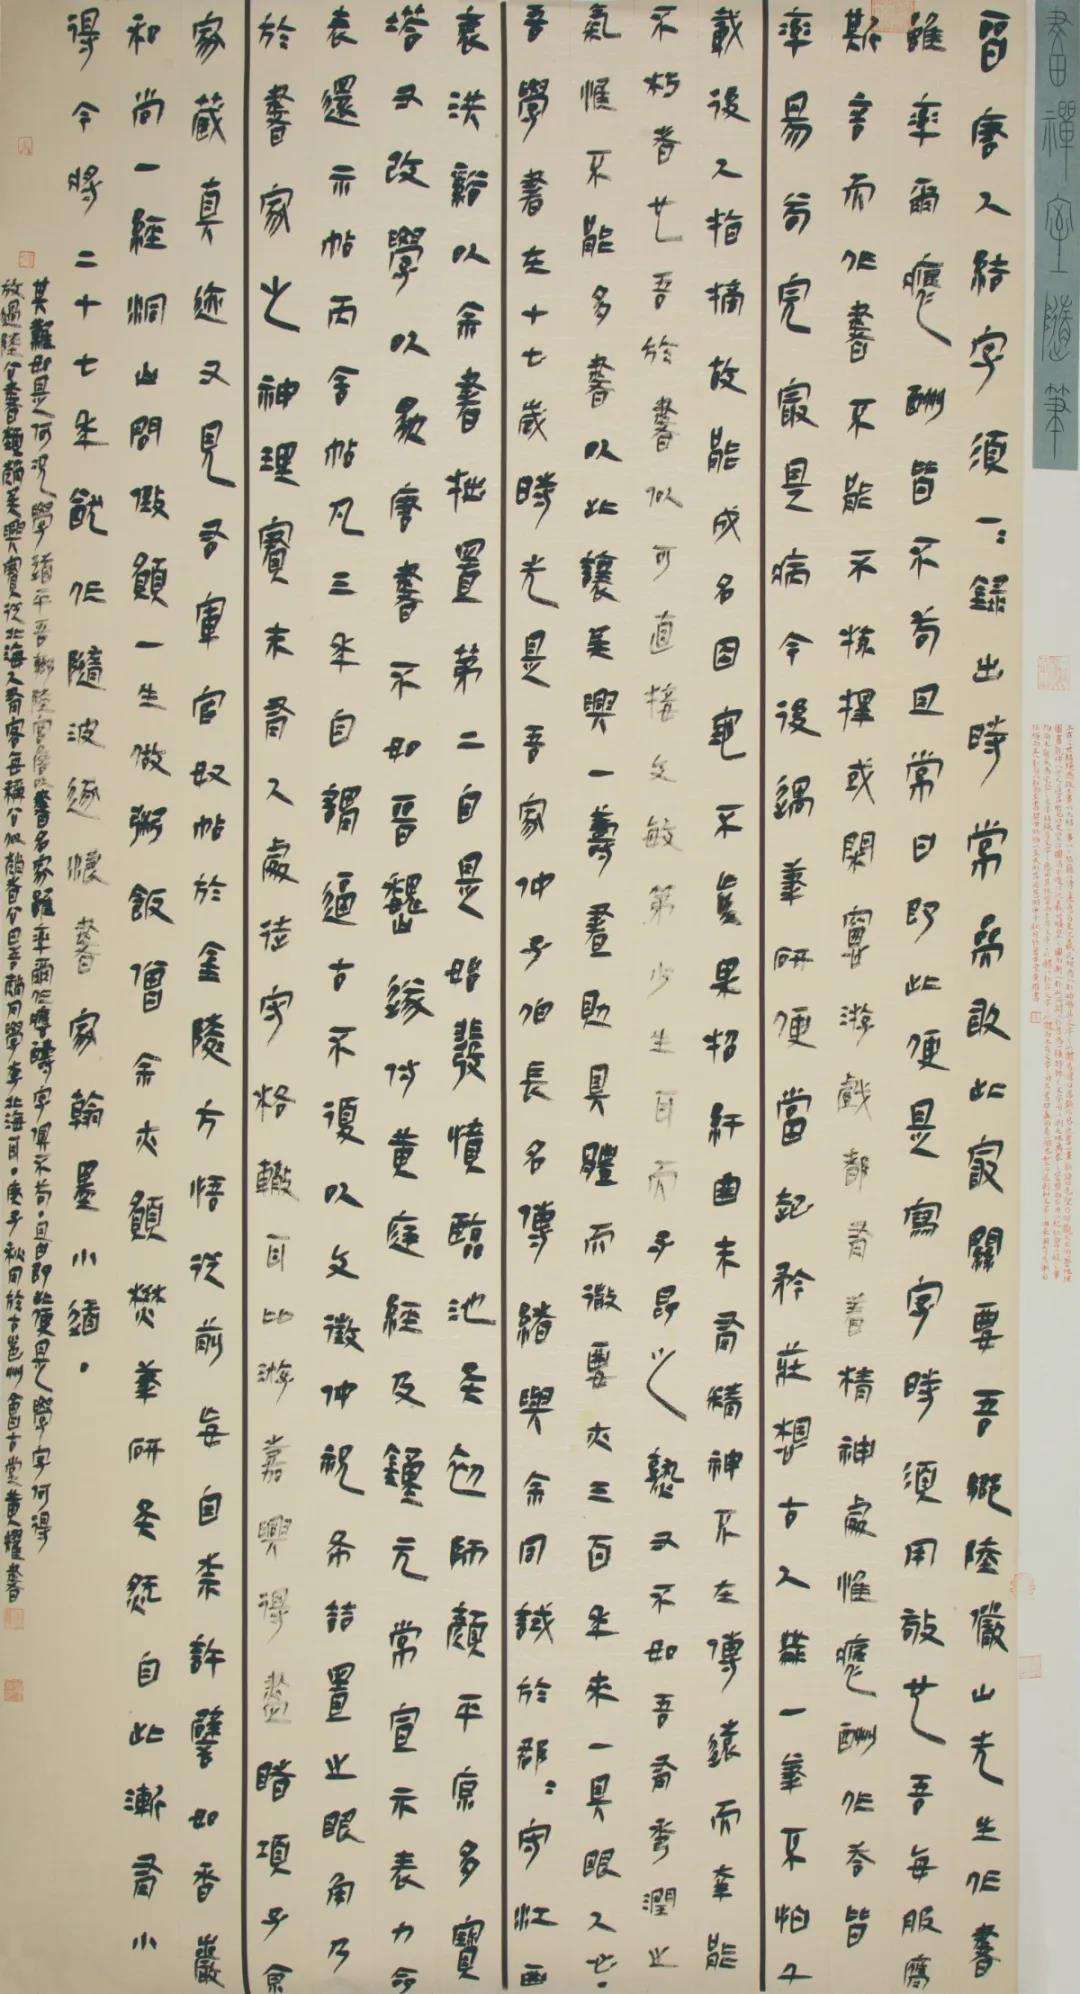 畫禪室隨筆
晉唐人結字須一一錄出時常參取此最關要吾鄉陸儼山先生作書
雖率爾應酬皆不苟且常曰即此便是寫字時須用敬也吾每服膺
斯言而作書不能不揀擇或閑窗游戲都有著精神處惟應酬作答皆
率易苟完最是病今後遇筆研便當起矜莊想古人無一筆不怕千
載後人指摘故能成名因地不真果招紆曲未有精神不在傳遠而幸能
不朽者也吾於書似可直接文敏第少生耳而子昂之熟又不如吾有秀潤之
氣惟不能多書以此讓吳興一籌畫則具體而微要亦三百年來一具眼人也
吾學書在十七歲時先是吾家仲子伯長名傳緒與余同試於郡郡守江西
袁洪溪以余書拙置第二自是始發憤臨池矣初師顏平原多寶
塔又改學以為唐書不如晉魏遂仿黃庭經及鍾元常宣示表力命
表還示帖丙舍帖凡三年自謂逼古不復以文徵仲祝希喆置之眼角乃
於書家之神理實未有入處徒守格轍耳比游嘉興得盡睹項子京
家藏真迹又見右軍官奴帖於金陵方悟從前妄自標許譬如香巖
和尚一經洞山問倒願一生做粥飯僧余亦願焚筆研矣然自此漸有小
得今將二十七年猶作隨波逐浪書家翰墨小道
其難如是何況學道乎吾鄉陸宮詹以書名家雖率爾作應酬字俱不苟且曰即此便是學字何得
放過陸公書類趙吳興實從北海入有客每稱公似趙者公曰吾趙同學李北海耳庚子秋月於古邕州會古堂黃耀書